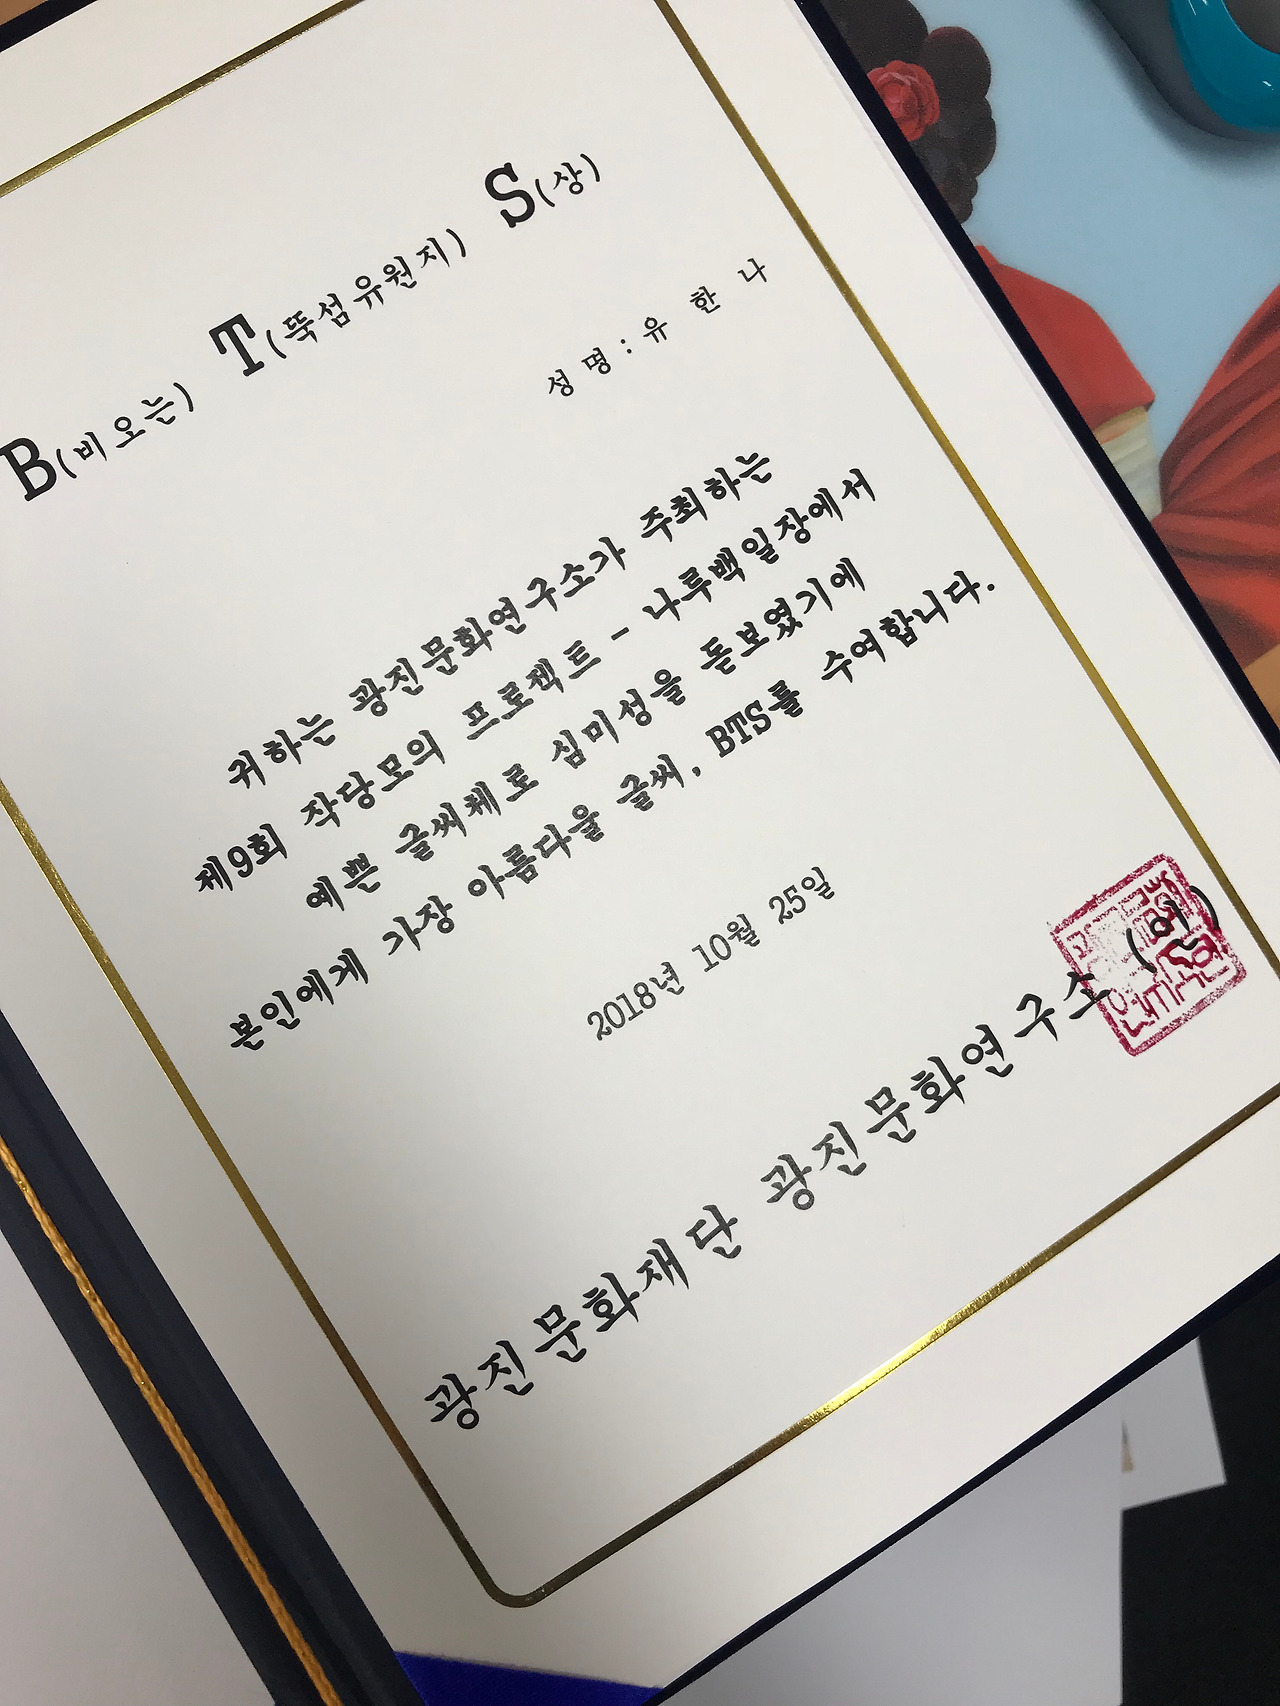 B(비오는) T(뚝섬유원지) S(상)
성명 : 유한나
귀하는 광진문화연구소가 주최하는
제9회 작당모의 프로젝트 - 나루백일장에서
예쁜 글씨체로 심미성을 돋보였기에
본인에게 가장 아름다울 글씨, BTS를 수여합니다.
2018년 10월 25일
광진문화재단 광진문화연구소 (인)